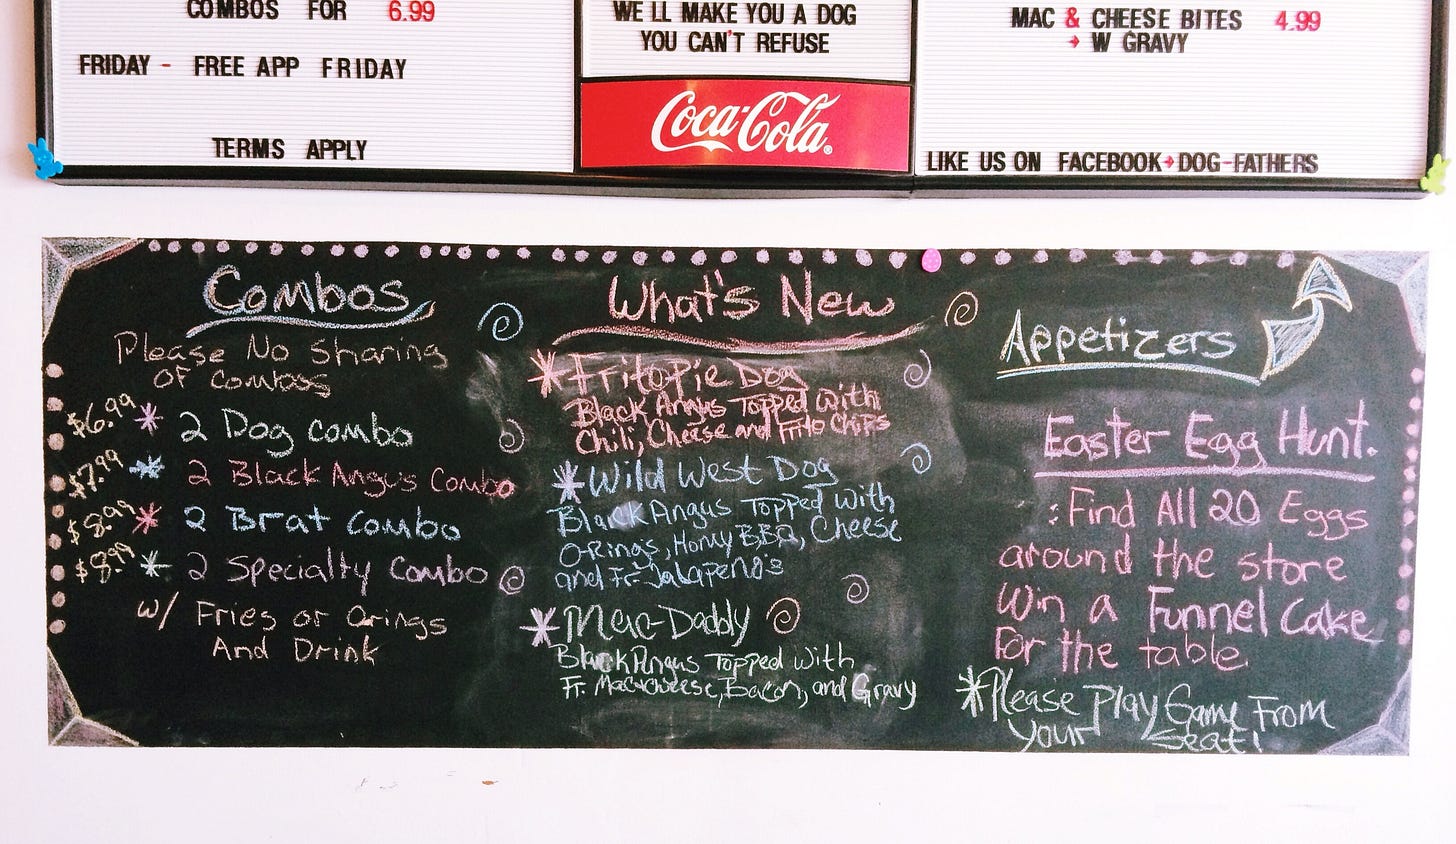 COMBOS FOR 6.99
FRIDAY - FREE APP FRIDAY
TERMS APPLY
WE LL MAKE YOU A DOG
YOU CAN'T REFUSE
Coca-Cola
MAC & CHEESE BITES 4.99
→ W GRAVY
LIKE US ON FACEBOOK→DOG-FATHERS
Combos
Please No Sharing
OF Combos
$6.99 * 2 Dog combo
$7.99 * 2 Black Angus Combo
$8.99 * 2 Brat Combo
$8.99 * 2 Specialty Combo
w/ Fries or Orings
And Drink
What's New
* Frito Pie Dog
Black Angus Topped with
Chili, Cheese and Frito Chips
* Wild West Dog
Black Angus Topped with
O-Rings, Honey BBQ, Cheese
and Fr. Jalapeno's
* Mac-Daddy
Black Angus Topped with
Fr. Mac+cheese, Bacon, and Gravy
Appetizers
Easter Egg Hunt.
: Find All 20 Eggs
around the store
Win a Funnel Cake
For the table
* Please Play Game From
Your Seat!